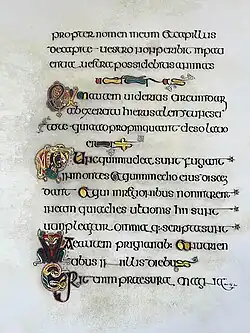 propter nomen meum Et capillus
decapite uestro non peribit Inpati
entia uestra possidebitis animas
Cum autem uideritis circumdari
ab exercitu hierusalem tunc sci
tote quia adpropinquauit desolatio
eius
Tunc qui in iudea sunt fugiant
in montes Et qui in medio eius disce
dant Et qui in regionibus non intrent
in eam quia dies ultionis hii sunt
ut inpleantur omnia quae scripta sunt
Uae autem praegnantibus Et nutrien
tibus in illis diebus
Erit enim praesura magna